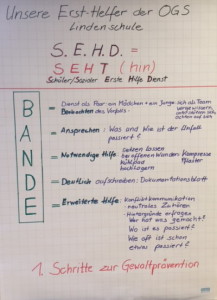 Unsere Erst-Helfer der OGS
Lindenschule
S. E. H. D. =
S E H T (hin)
Schüler/Sozialer Erste Hilfe Dienst
B = Dienst als Paar: ein Mädchen + ein Junge
Beobachten des Umfelds
A = Ansprechen: Was und Wie ist der Unfall
passiert?
N = Notwendige Hilfe
bei offenen Wunden Kompresse
Pflaster
D = Deutlich aufschreiben: Dokumentationsblatt
E = Erweiterte Hilfe: Konfliktkommunikation
neutrales Zuhören
Hintergründe erfragen
Wer hat was gemacht?
Wo ist es passiert?
Wie oft ist schon
etwas passiert?
1. Schritte zur Gewaltprävention